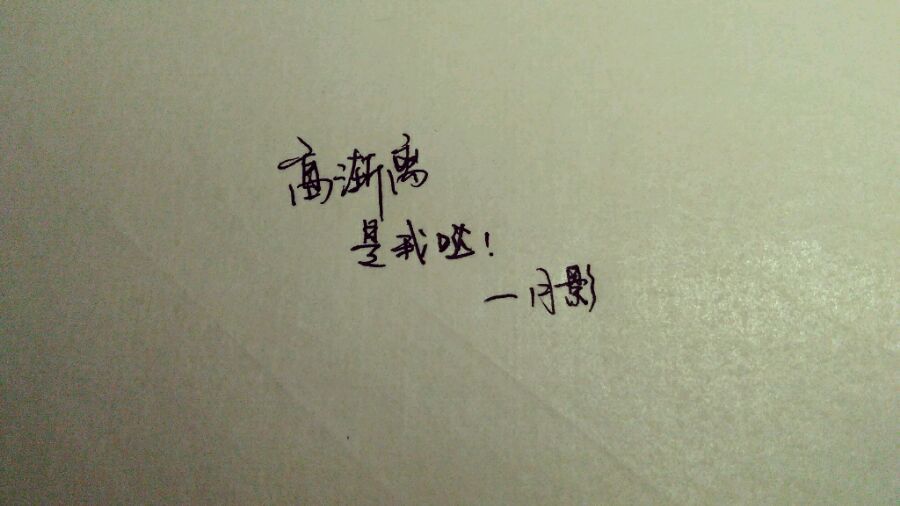 高渐离
是我哒！
—月影